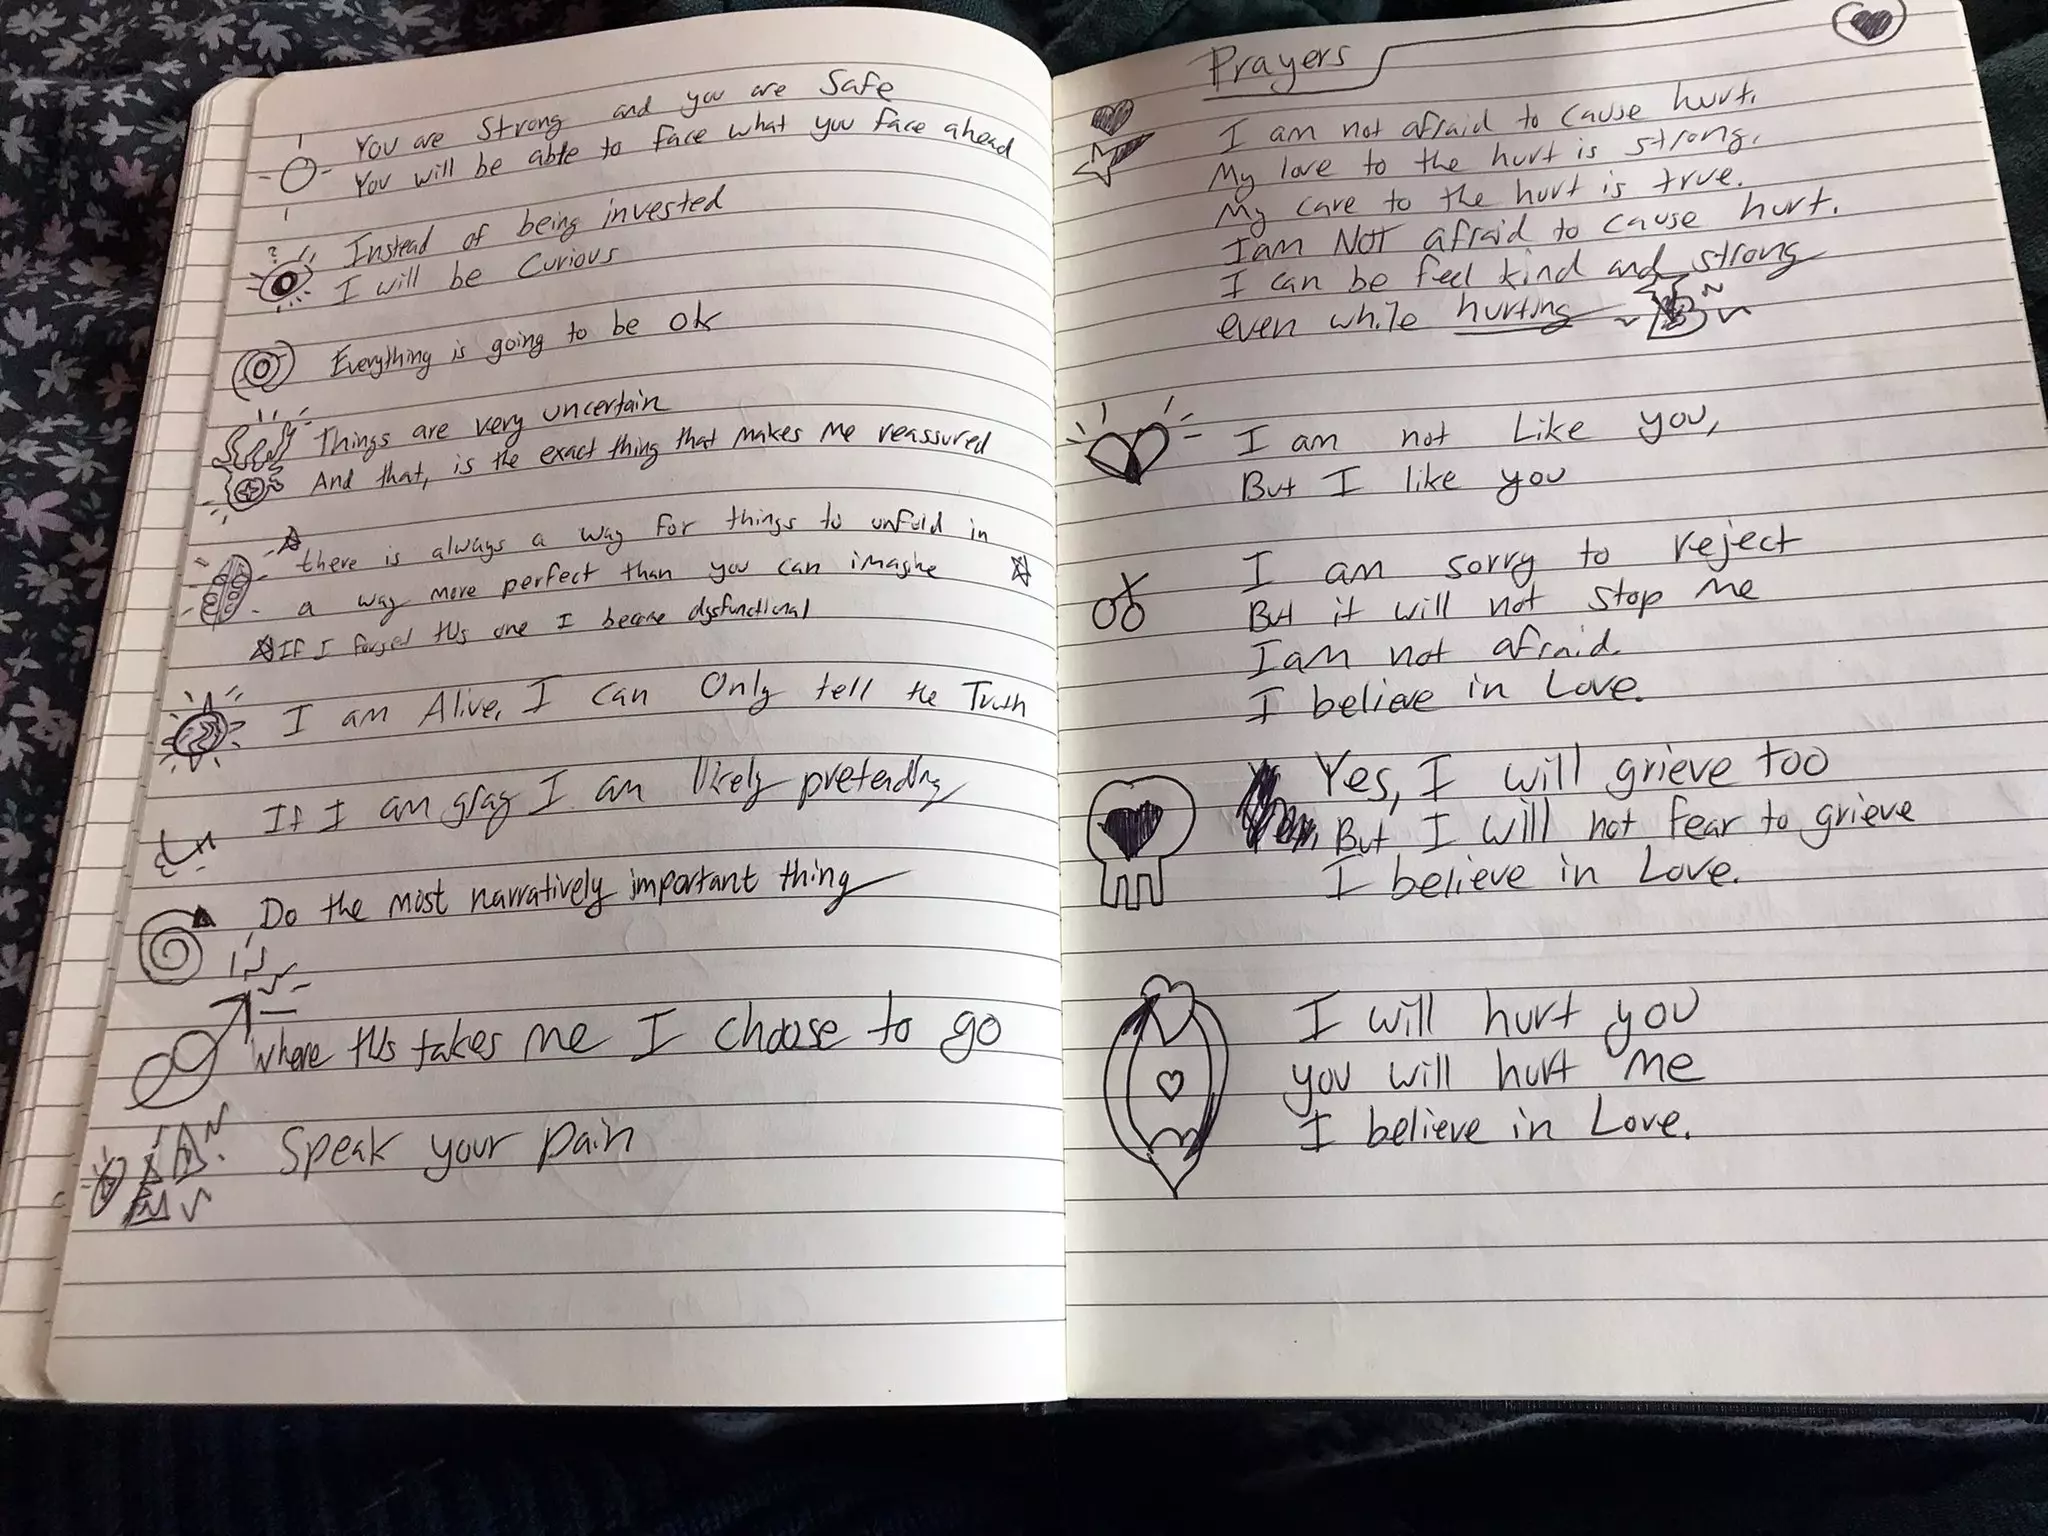 You are Strong and you are Safe
You will be able to face what you face ahead
Instead of being invested
I will be Curious
Everything is going to be ok
Things are very uncertain
And that, is the exact thing that makes me reassured
there is always a way for things to unfold in
a way more perfect than you can imagine
If I forget this one I become dysfunctional
I am Alive, I can Only tell the Truth
If I am gray I am likely pretending
Do the most narratively important thing
where this takes me I choose to go
Speak your pain
Prayers
I am not afraid to cause hurt.
My love to the hurt is strong.
My care to the hurt is true.
I am NOT afraid to cause hurt.
I can be feel kind and strong
even while hurting
I am not Like you,
But I like you
I am sorry to reject
But it will not stop me
I am not afraid.
I believe in Love.
Yes, I will grieve too
But I will not fear to grieve
I believe in Love.
I will hurt you
you will hurt me
I believe in Love.